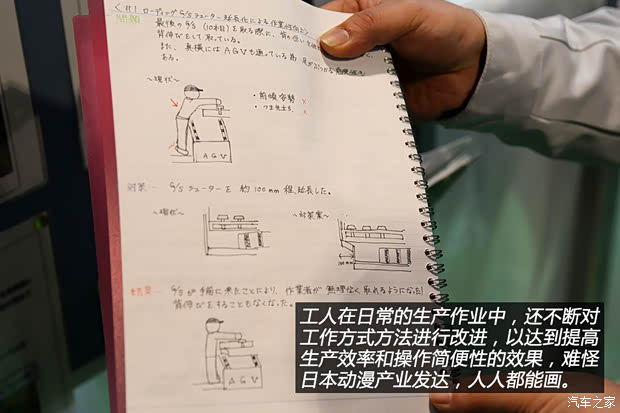 <#1 ローディング G/Sシューター延長化による作業性向上>
最後のG/S (10本目)を取る際に、背の低い
背伸びをして取っている。
また、真横にはAGVも通っている為 足がぶつかる
ある。
〜現状〜
・前傾姿勢 ×
・つま先立ち ×
AGV
対策… G/Sシューターを 約100mm程、延長した。
〜現状〜
〜対策案〜
100mm
結果… G/Sが手前に来たことにより、作業者が無理なく取れるようになった!
背伸びをすることもなくなった。
AGV
工人在日常的生产作业中，还不断对
工作方式方法进行改进，以达到提高
生产效率和操作简便性的效果，难怪
日本动漫产业发达，人人都能画。
汽车之家